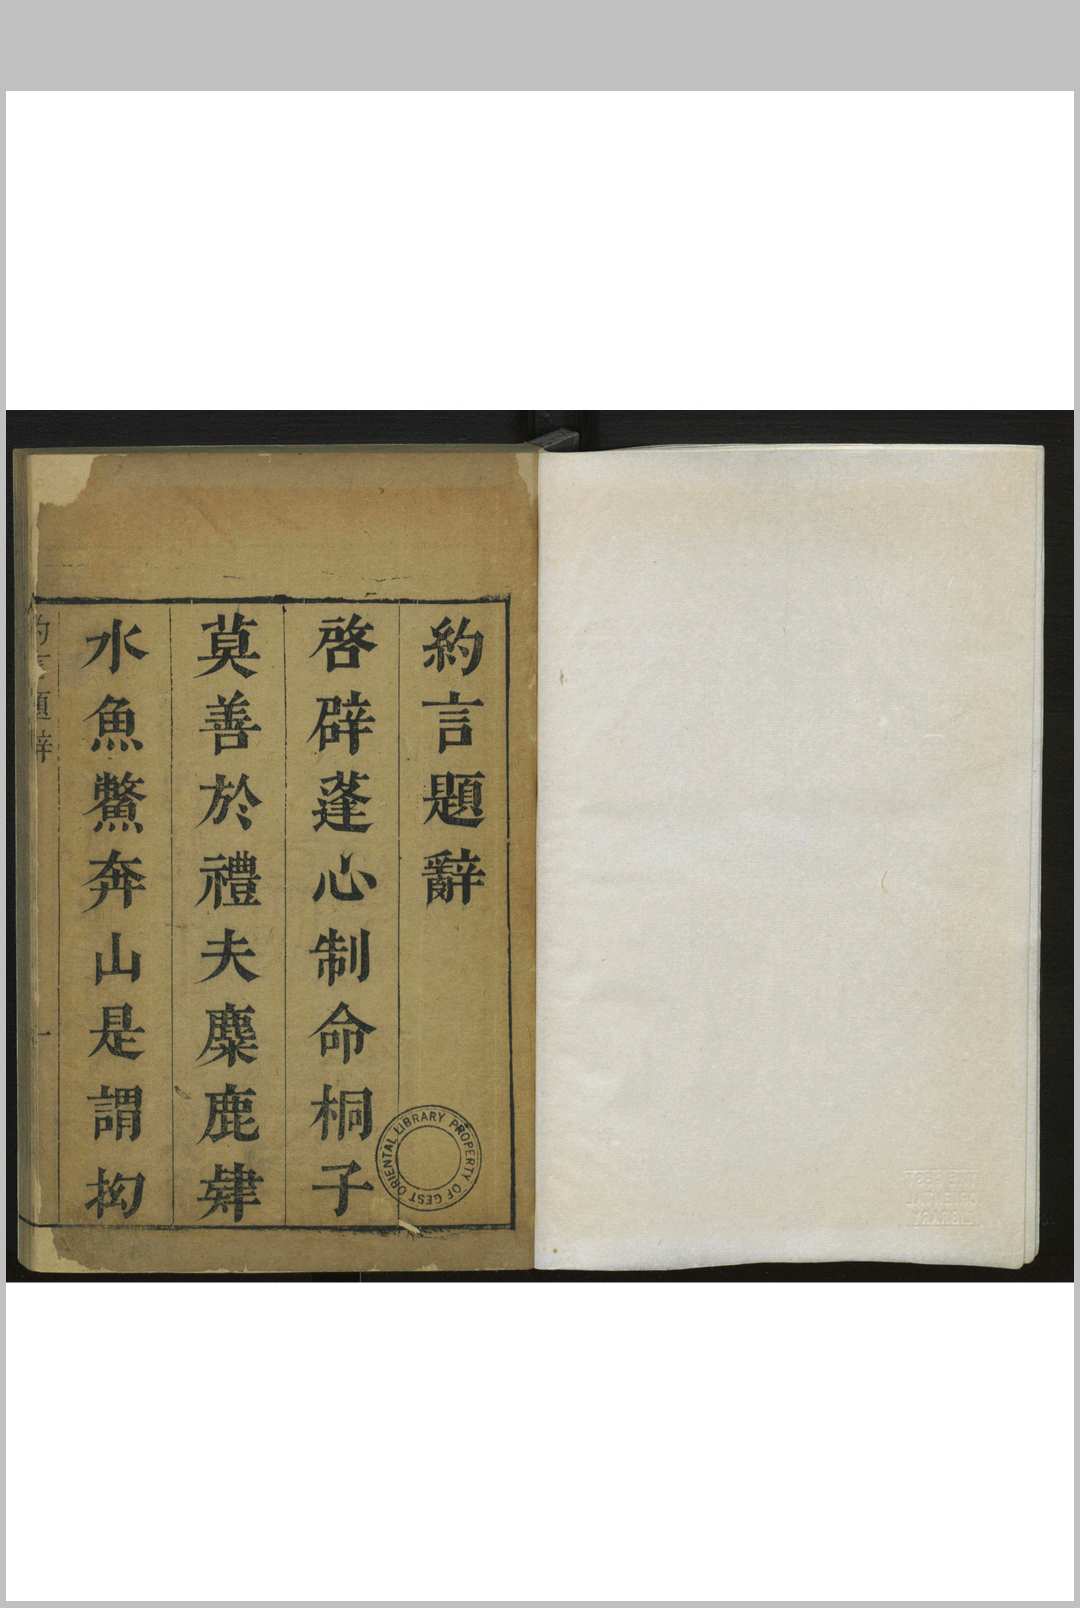 約言題辭
啓辟蓬心制命桐子
莫善於禮夫麋鹿肂
水魚鱉奔山是謂抝
題辭
一
GEST ORIENTAL LIBRARY PROPERTY OF